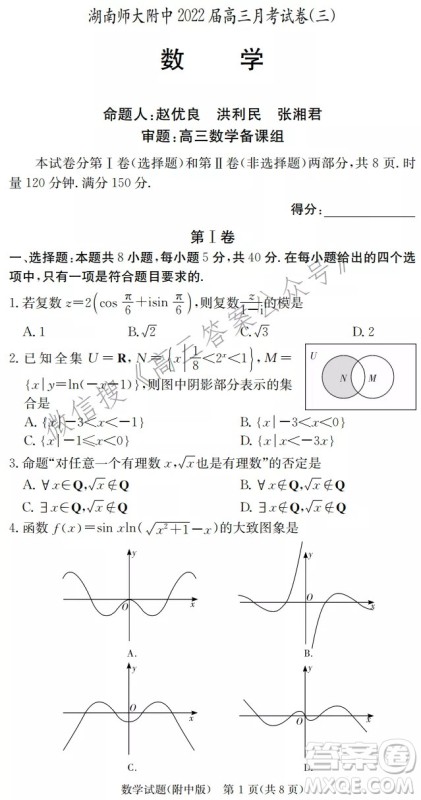 湖南师大附中2022届高三月考试卷(三)
数 学
命题人:赵优良 洪利民 张湘君
审题:高三数学备课组
本试卷分第Ⅰ卷(选择题)和第Ⅱ卷(非选择题)两部分,共8页.时
量120分钟.满分150分.
得分:
第Ⅰ卷
一、选择题:本题共8小题,每小题5分,共40分.在每小题给出的四个选
项中,只有一项是符合题目要求的.
1.若复数z=2(cos π/6+isin π/6),则复数z/(1-i)的模是
A.1 B.√2 C.√3 D.2
2.已知全集U=R,N={x|1/8<2ˣ<1},M=
{x|y=ln(-x-1)},则图中阴影部分表示的集
合是
U
N M
A.{x|-3<x<-1} B.{x|-3<x<0}
C.{x|-1≤x<0} D.{x|x<-3x}
3.命题“对任意一个有理数x,√x也是有理数”的否定是
A.∀x∈Q,√x∉Q B.∀x∉Q,√x∉Q
C.∃x∉Q,√x∉Q D.∃x∈Q,√x∉Q
4.函数f(x)=sin xln(√(x²+1)-x)的大致图象是
y
O x
A.
y
O x
B.
y
O x
C.
y
O x
数学试题(附中版) 第1页(共8页)
微信搜《高三答案公众号》
答案圈